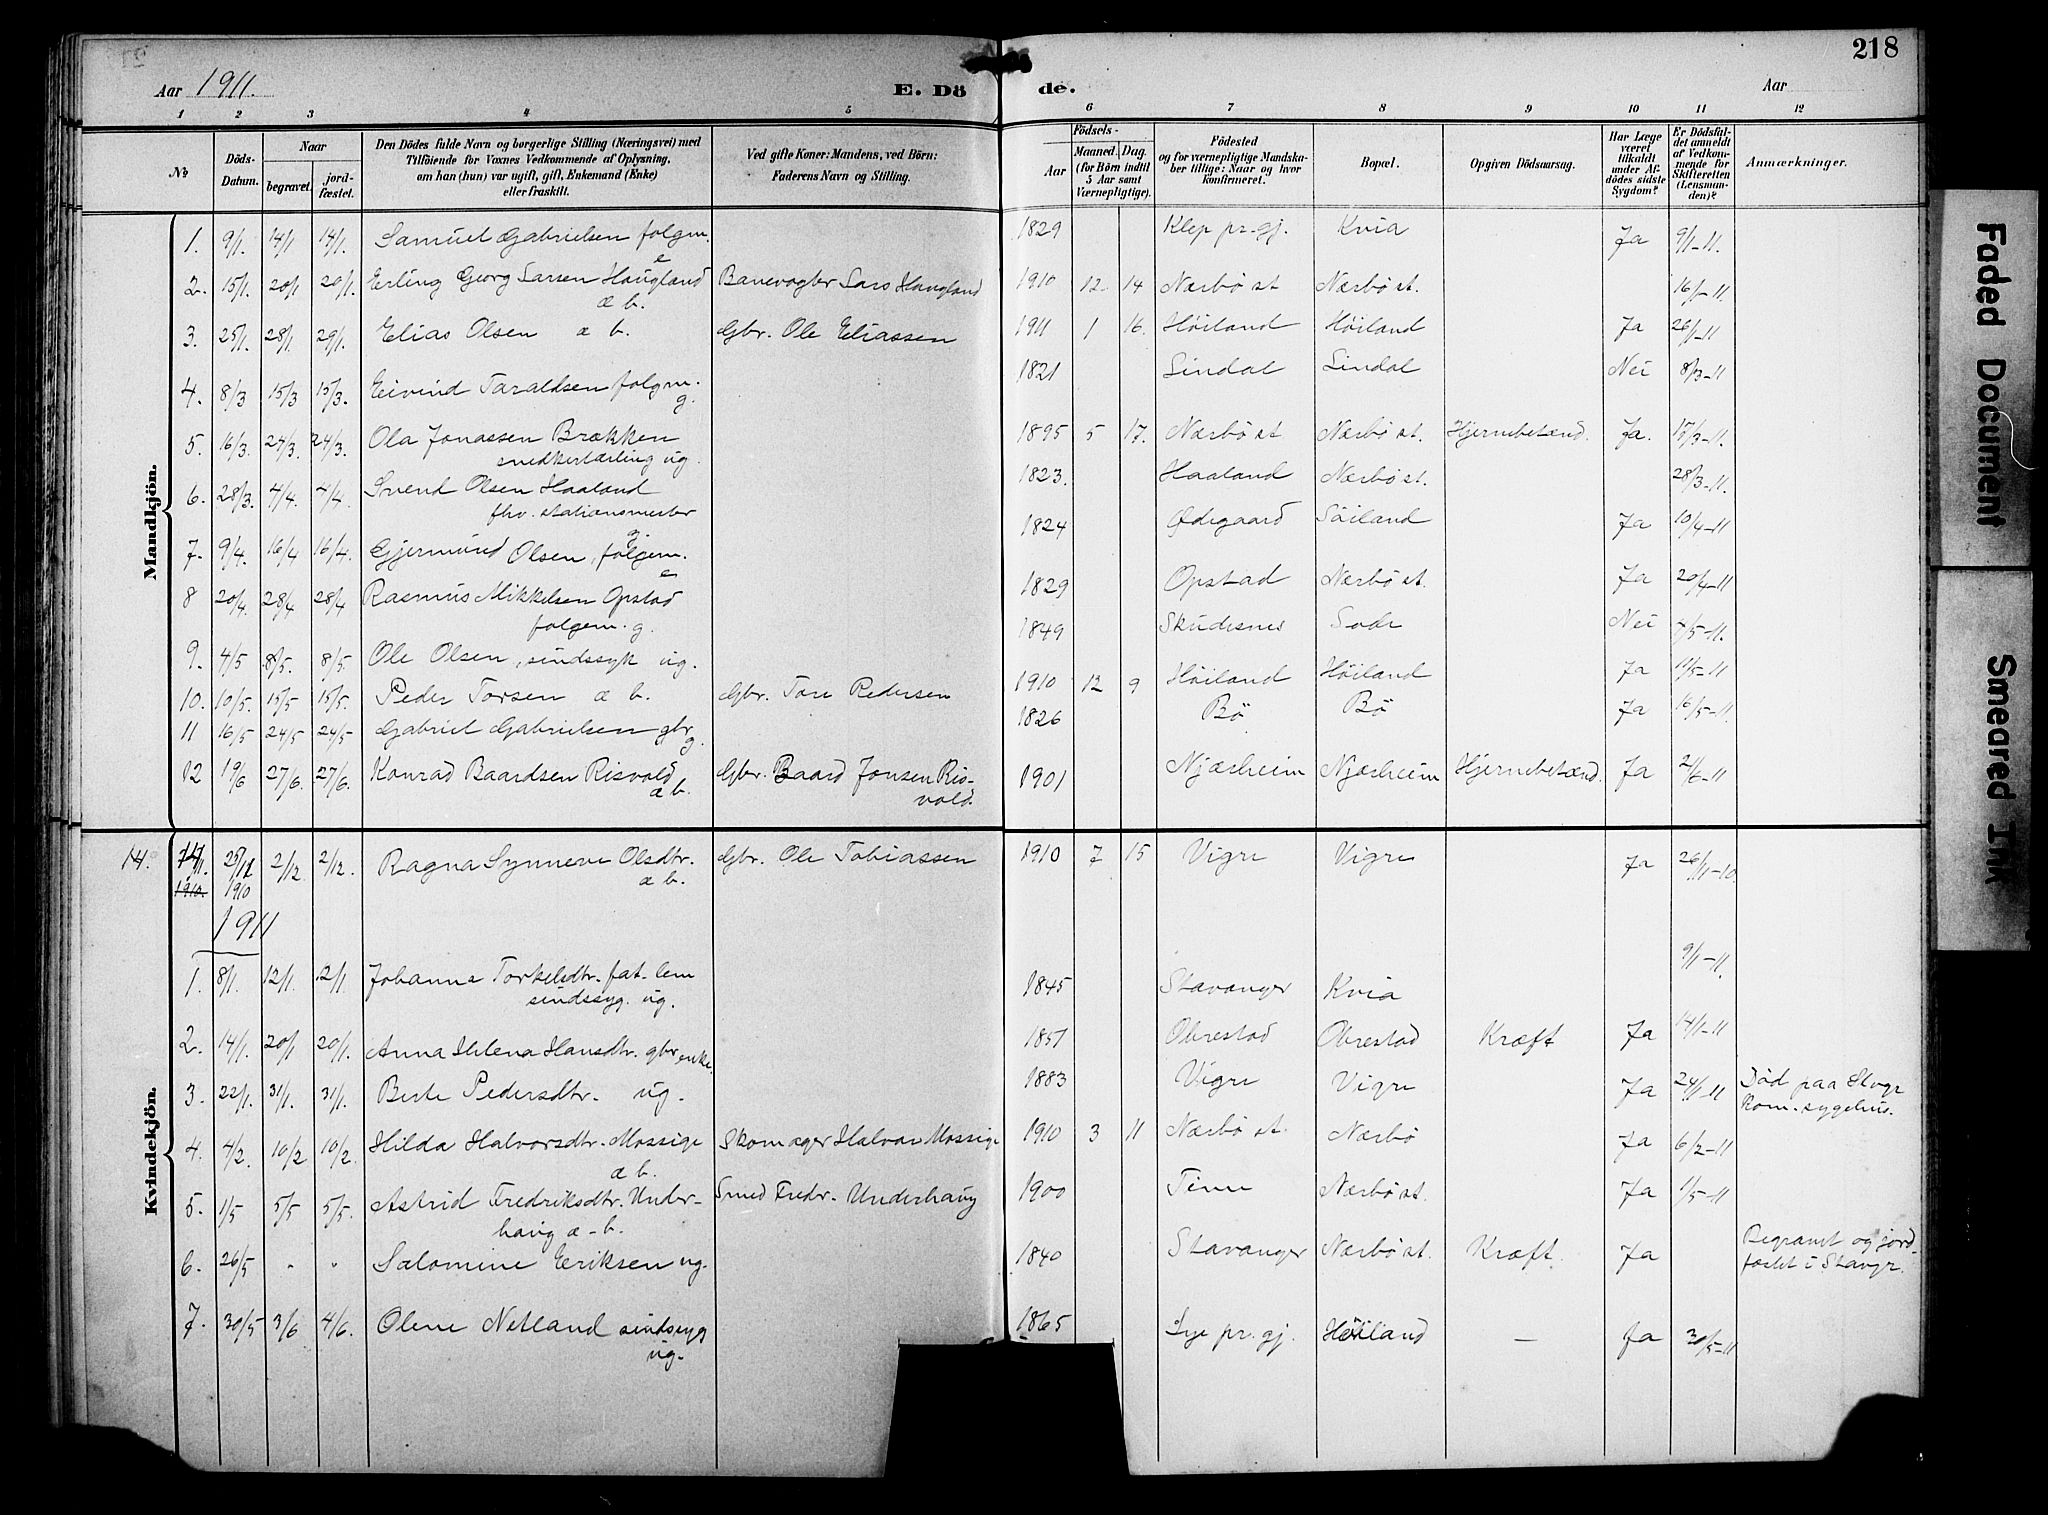 218
Aar 1911. E. Dö de. Aar
1 2 3 4 5 6 7 8 9 10 11 12
№ Döds-Datum. Naar begravet. jord-fæstet. Den Dödes fulde Navn og borgerlige Stilling (Næringsvei) med Tilföiende for Voxnes Vedkommende af Oplysning, om han (hun) var ugift, gift, Enkemand (Enke) eller fraskilt. Ved gifte Koner: Mandens, ved Börn: Faderens Navn og Stilling. Födsels- Aar Maaned. Dag. (for Börn indtil 5 Aar samt Værnepligtige). Födested og for værnepligtige Mandska-ber tillige: Naar og hvor konfirmeret. Bopæl. Opgiven Dödsaarsag. Har Læge været tilkaldt under Af-dödes sidste Sygdom? Er Dödsfal-det anmeldt af Vedkom-mende for Skifteretten (Lensman-den)? Anmærkninger.
Mandkjön.
1. 9/1. 14/1 14/1. Samuel Gabrielsen folgm. e 1829 Klep pr.gj. Kvia Ja 9/1-11.
2. 15/1. 20/1 20/1. Erling Georg Larsen Haugland æ b. Banevogter Lars Haugland 1910 12 14 Nærbö st Nærbö st. 16/1-11.
3. 25/1. 28/1. 29/1. Elias Olsen æ b. Gbr. Ole Eliassen 1911 1 16. Höiland Höiland Ja 26/1-11
4. 8/3 15/3 15/3. Eivind Taraldsen folgm. g. 1821 Lindal Lindal Nei 8/3-11
5. 16/3. 24/3. 24/3. Ola Jonassen Brækken snedkerlærling ug. 1895 5 17. Nærbö st Nærbö st. Hjernebetænd. Ja. 15/3-11.
6. 28/3. 4/4. 4/4. Svend Olsen Haaland fhv. stationsmester g. 1823. Haaland Nærbö st. 28/3-11.
7. 9/4. 16/4 16/4. Gjermund Olsen, folgem. e 1824 Ødegaard Söiland Ja 10/4-11
8 20/4. 28/4 28/4 Rasmus Mikkelsen Opstad folgem. g. 1829 Opstad Nærbö st. Ja 20/4-11
9. 4/5 8/5. 8/5. Ole Olsen, sindssyk ug. 1849 Skudesnes Nei 4/5-11.
10. 10/5. 15/5 15/5. Peder Torsen æ b. Gbr. Tore Pedersen 1910 12 9 Höiland Höiland Ja 11/5-11
11 16/5 24/5 24/5 Gabriel Gabrielsen gbr g. 1826 Bö Bö Ja 16/5-11.
12 19/6 27/6. 27/6. Konrad Baardsen Risvold æ b. Gbr. Baard Jonsen Ris-vold. 1901 Njærheim Njærheim Hjernebetænd. Ja 21/6-11
Kvindekjön.
14. 1910. 25/11 1910 2/12 2/12. Ragna Synneve Olsdtr. æ b. Gbr. Ole Tobiassen 1910 7 15 Vigre Vigre Ja 26/11-10.
1911
1. 8/1. 12/1. 12/1. Johanne Torkelsdtr. fat. lem sindssyg. ug. 1845 Stavanger Kvia 9/1-11.
2. 14/1. 20/1 20/1. Anna Helena Hansdtr. gbr. enke. 1851 Obrestad Obrestad Kræft Ja 14/1-11
3. 22/1. 31/1. 31/1. Berte Pedersdtr. ug. 1883 Vigre Vigre Ja 24/1-11 Död paa Stvgr kom. sygehus.
4. 4/2. 10/2 10/2. Hilda Halvorsdtr. Mossige æ b. Skomager Halvor Mossige 1910 3 11 Nærbö st. Nærbö Ja 6/2-11
5. 1/5 5/5 5/5. Astrid Fredriksdtr. Under-haug æ-b. Smed Fredr. Underhaug 1900 Time Nærbö st. Ja 1/5-11
6. 26/5 " " Salomine Eriksen ug. 1840 Stavanger Nærbö st. Kræft. Ja Begravet og jord-fæstet i Stavgr.
7. 30/5 3/6 4/6. Olene Netland sindssyg ug. 1865 Lye pr. gj. Höiland — Ja 30/5-11
Faded Document
Smeared Ink